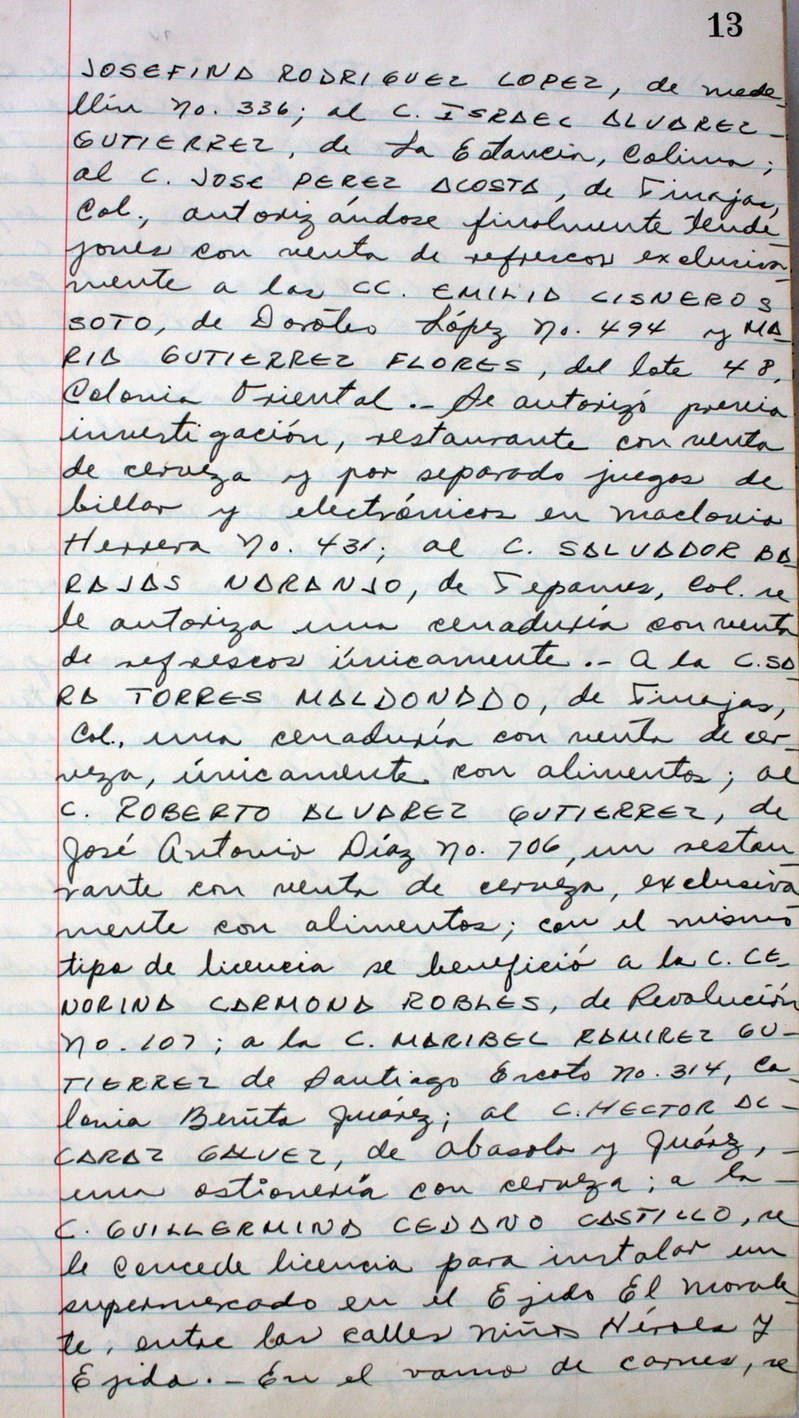 13
JOSEFINA RODRIGUEZ LOPEZ, de mede-
llín No. 336; al C. ISRAEL ALVAREZ -
GUTIERREZ, de La Estancia, Colima;
al C. JOSE PEREZ ACOSTA, de Tinajas,
Col., autorizándose finalmente tende
jones con venta de refrescos exclusiva-
mente a las CC. EMILIA CISNEROS
SOTO, de Doroteo López No. 494 y MA-
RIA GUTIERREZ FLORES, del lote 48,
Colonia Oriental.- Se autorizó previa
investigación, restaurante con venta
de cerveza y por separado juegos de
billar y electrónicos en Maclovio
Herrera No. 431; al C. SALVADOR BA-
RAJAS NARANJO, de Tepames, Col. se
le autoriza una cenaduría con venta
de refrescos únicamente.- A la C. SA-
RA TORRES MALDONADO, de Tinajas,
Col., una cenaduría con venta de cer-
veza, únicamente con alimentos; al
C. ROBERTO ALVAREZ GUTIERREZ, de
José Antonio Díaz No. 706, un restau
rante con venta de cerveza, exclusiva
mente con alimentos; con el mismo
tipo de licencia se benefició a la C. CE-
NORINA CARMONA ROBLES, de Revolución
No. 107; a la C. MARIBEL RAMIREZ GU-
TIERREZ de Santiago Escoto No. 314, Co-
lonia Benito Juárez; al C. HECTOR AL-
CARAZ GALVEZ, de Abasolo y Juárez, -
una ostionería con cerveza; a la -
C. GUILLERMINA CEDANO CASTILLO, se
le concede licencia para instalar un
supermercado en el Ejido El Morali-
te, entre las calles Niños Héroes y
Ejido.- En el ramo de carnes, se